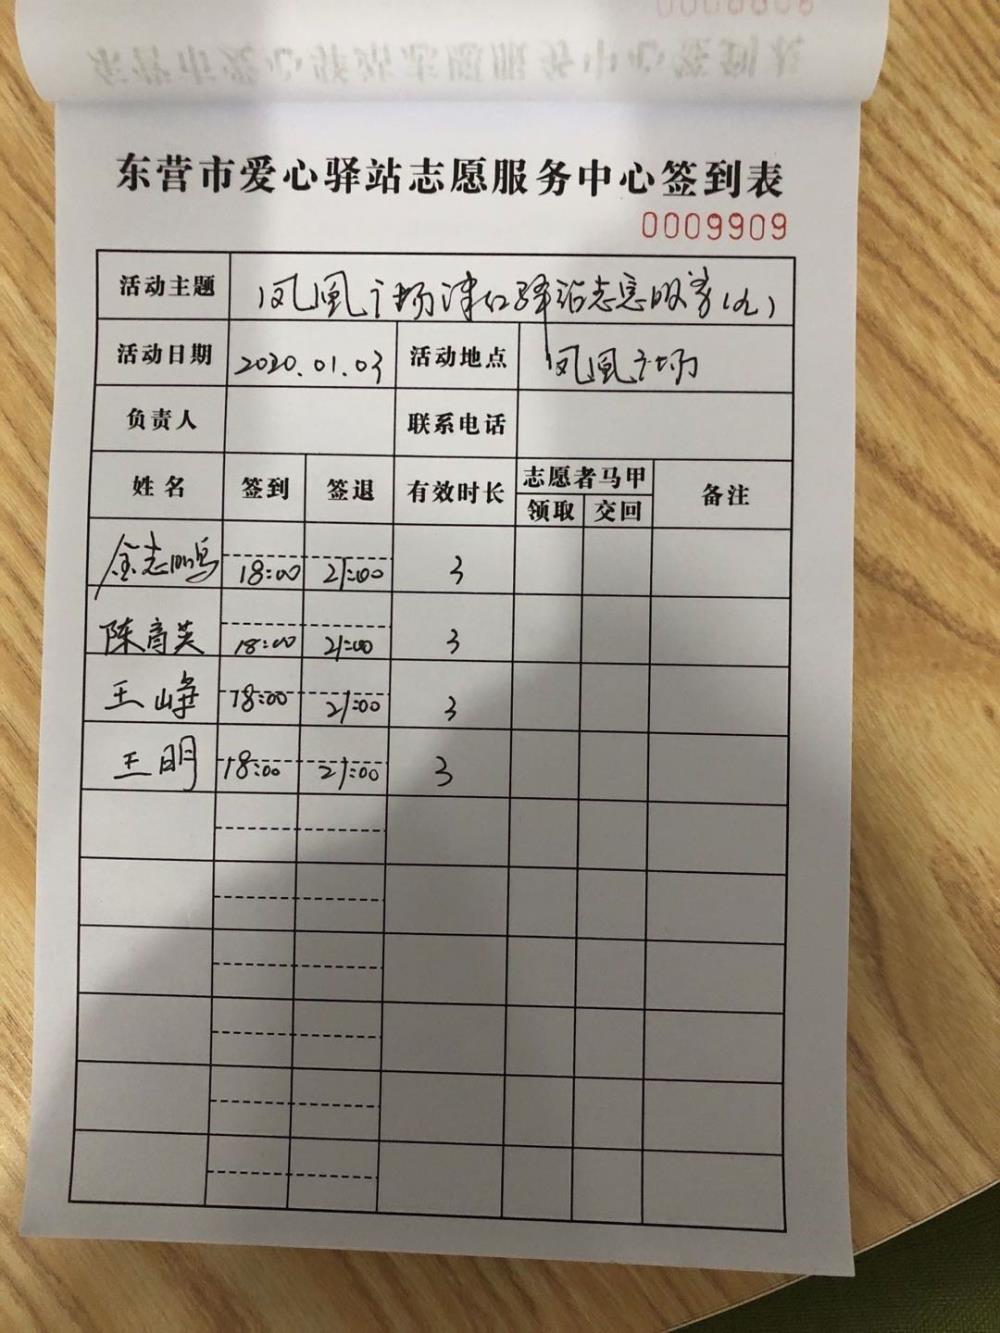 东营市爱心驿站志愿服务中心签到表
0009909
活动主题 凤凰广场津红驿站志愿服务(九)
活动日期 2020.01.03 活动地点 凤凰广场
负责人 联系电话
姓名 签到 签退 有效时长 志愿者马甲 备注
领取 交回
金志鸣 18:00 21:00 3
陈育英 18:00 21:00 3
王峥 18:00 21:00 3
王明 18:00 21:00 3